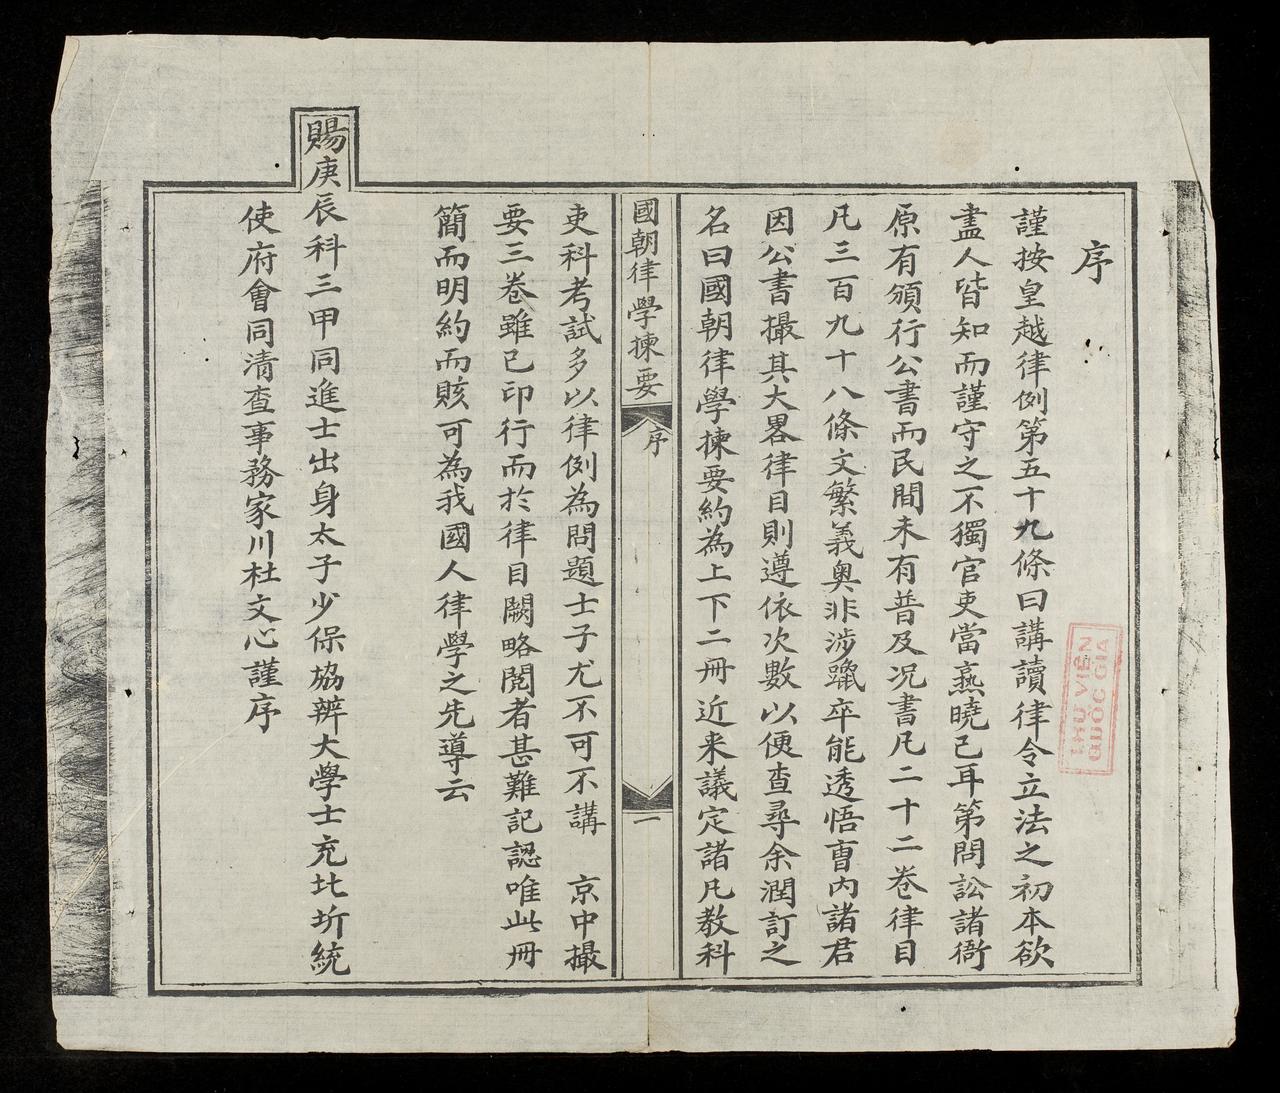 序
謹按皇越律例第五十九條曰講讀律令立法之初本欲
盡人皆知而謹守之不獨官吏當燕曉已耳第問訟諸衙
原有頒行公書而民間未有普及况書凡二十二卷律目
凡三百九十八條文繁義奥非涉躐卒能透悟曺内諸君
因公書撮其大畧律目則遵依次數以便查尋余潤訂之
名曰國朝律學揀要約為上下二冊近来議定諸凡教科
國朝律學揀要
序
一
吏科考試多以律例為問題士子尤不可不講 京中撮
要三卷雖已印行而於律目闕略閲者甚難記認唯此冊
簡而明約而賅可為我國人律學之先導云
賜庚辰科三甲同進士出身太子少保協辨大學士充北圻統
使府會同清查事務家川杜文心謹序
THƯ VIỆN
QUỐC GIA